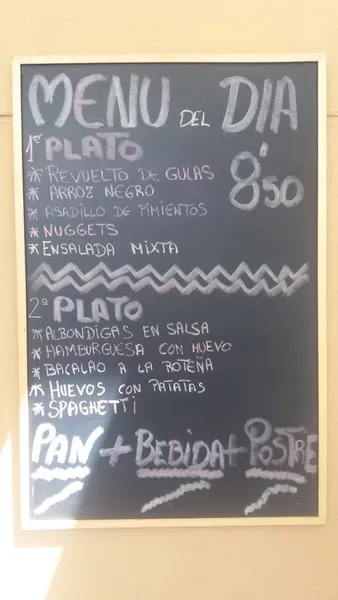 MENU DEL DIA
8'50
1er PLATO
* REVUELTO DE GULAS
* ARROZ NEGRO
* ASADILLO DE PIMIENTOS
* NUGGETS
* ENSALADA MIXTA
2º PLATO
* ALBONDIGAS EN SALSA
* HAMBURGUESA CON HUEVO
* BACALAO A LA ROTEÑA
* HUEVOS CON PATATAS
* SPAGHETTI
PAN + BEBIDA + POSTRE